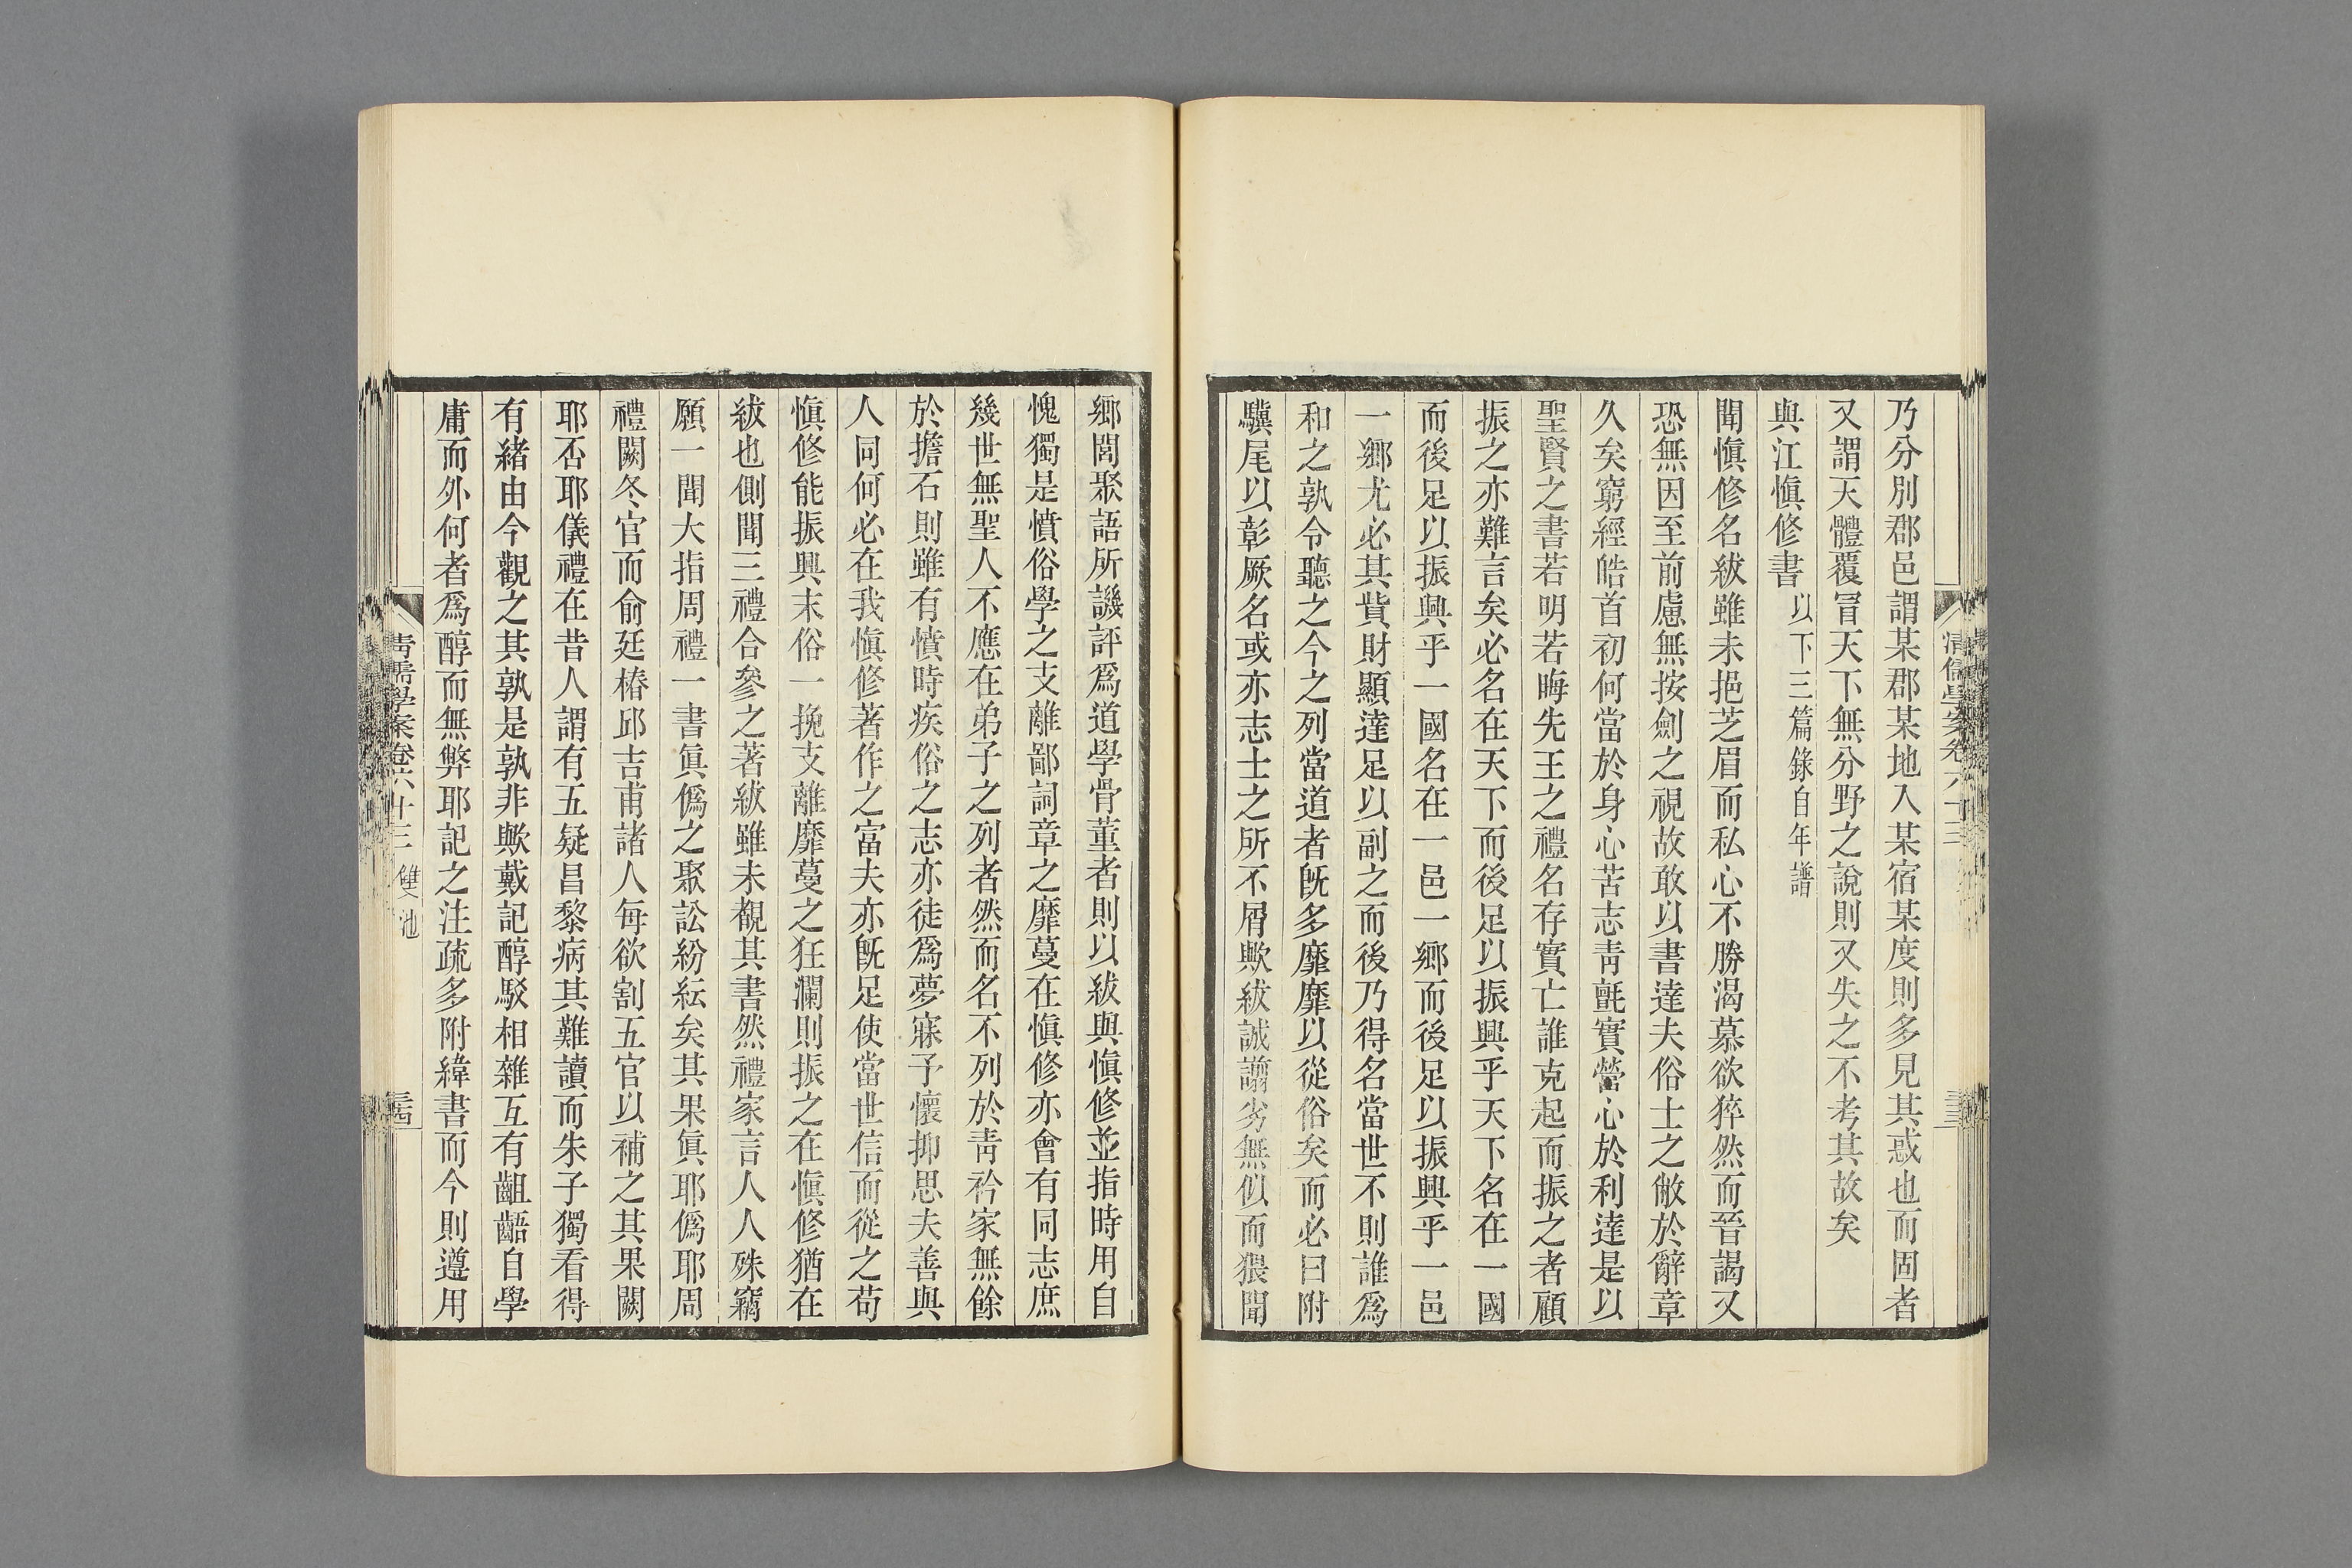 乃分別郡邑謂某郡某地入某宿某度則多見其惑也而固者
又謂天體覆冒天下無分野之說則又失之不考其故矣
與江愼修書以下三篇錄自年譜
聞愼修名紱雖未挹芝眉而私心不勝渴慕欲猝然而晉謁又
恐無因至前慮無按劍之視故敢以書達夫俗士之敝於辭章
久矣窮經皓首初何當於身心苦志靑氈實營心於利達是以
聖賢之書若明若晦先王之禮名存實亡誰克起而振之者顧
振之亦難言矣必名在天下而後足以振興乎天下名在一國
而後足以振興乎一國名在一邑一鄉而後足以振興乎一邑
一鄉尤必其貲財顯達足以副之而後乃得名當世不則誰爲
和之孰令聽之今之列當道者旣多靡靡以從俗矣而必曰附
驥尾以彰厥名或亦志士之所不屑歟紱誠譾劣無似而猥聞
鄉閭聚語所譏評爲道學骨董者則以紱與愼修並指時用自
愧獨是憤俗學之支離鄙詞章之靡蔓在愼修亦會有同志庶
幾世無聖人不應在弟子之列者然而名不列於靑衿家無餘
於擔石則雖有憤時疾俗之志亦徒爲夢寐予懷抑思夫善與
人同何必在我愼修著作之富夫亦旣足使當世信而從之苟
愼修能振興末俗一挽支離靡蔓之狂瀾則振之在愼修猶在
紱也側聞三禮合參之著紱雖未覩其書然禮家言人人殊竊
願一聞大指周禮一書眞僞之聚訟紛紜矣其果眞耶僞耶周
禮闕冬官而俞廷椿邱吉甫諸人每欲割五官以補之其果闕
耶否耶儀禮在昔人謂有五疑昌黎病其難讀而朱子獨看得
有緖由今觀之其孰是孰非歟戴記醇駁相雜互有齟齬自學
庸而外何者爲醇而無弊耶記之注疏多附緯書而今則遵用
清儒學案卷六十三
雙池